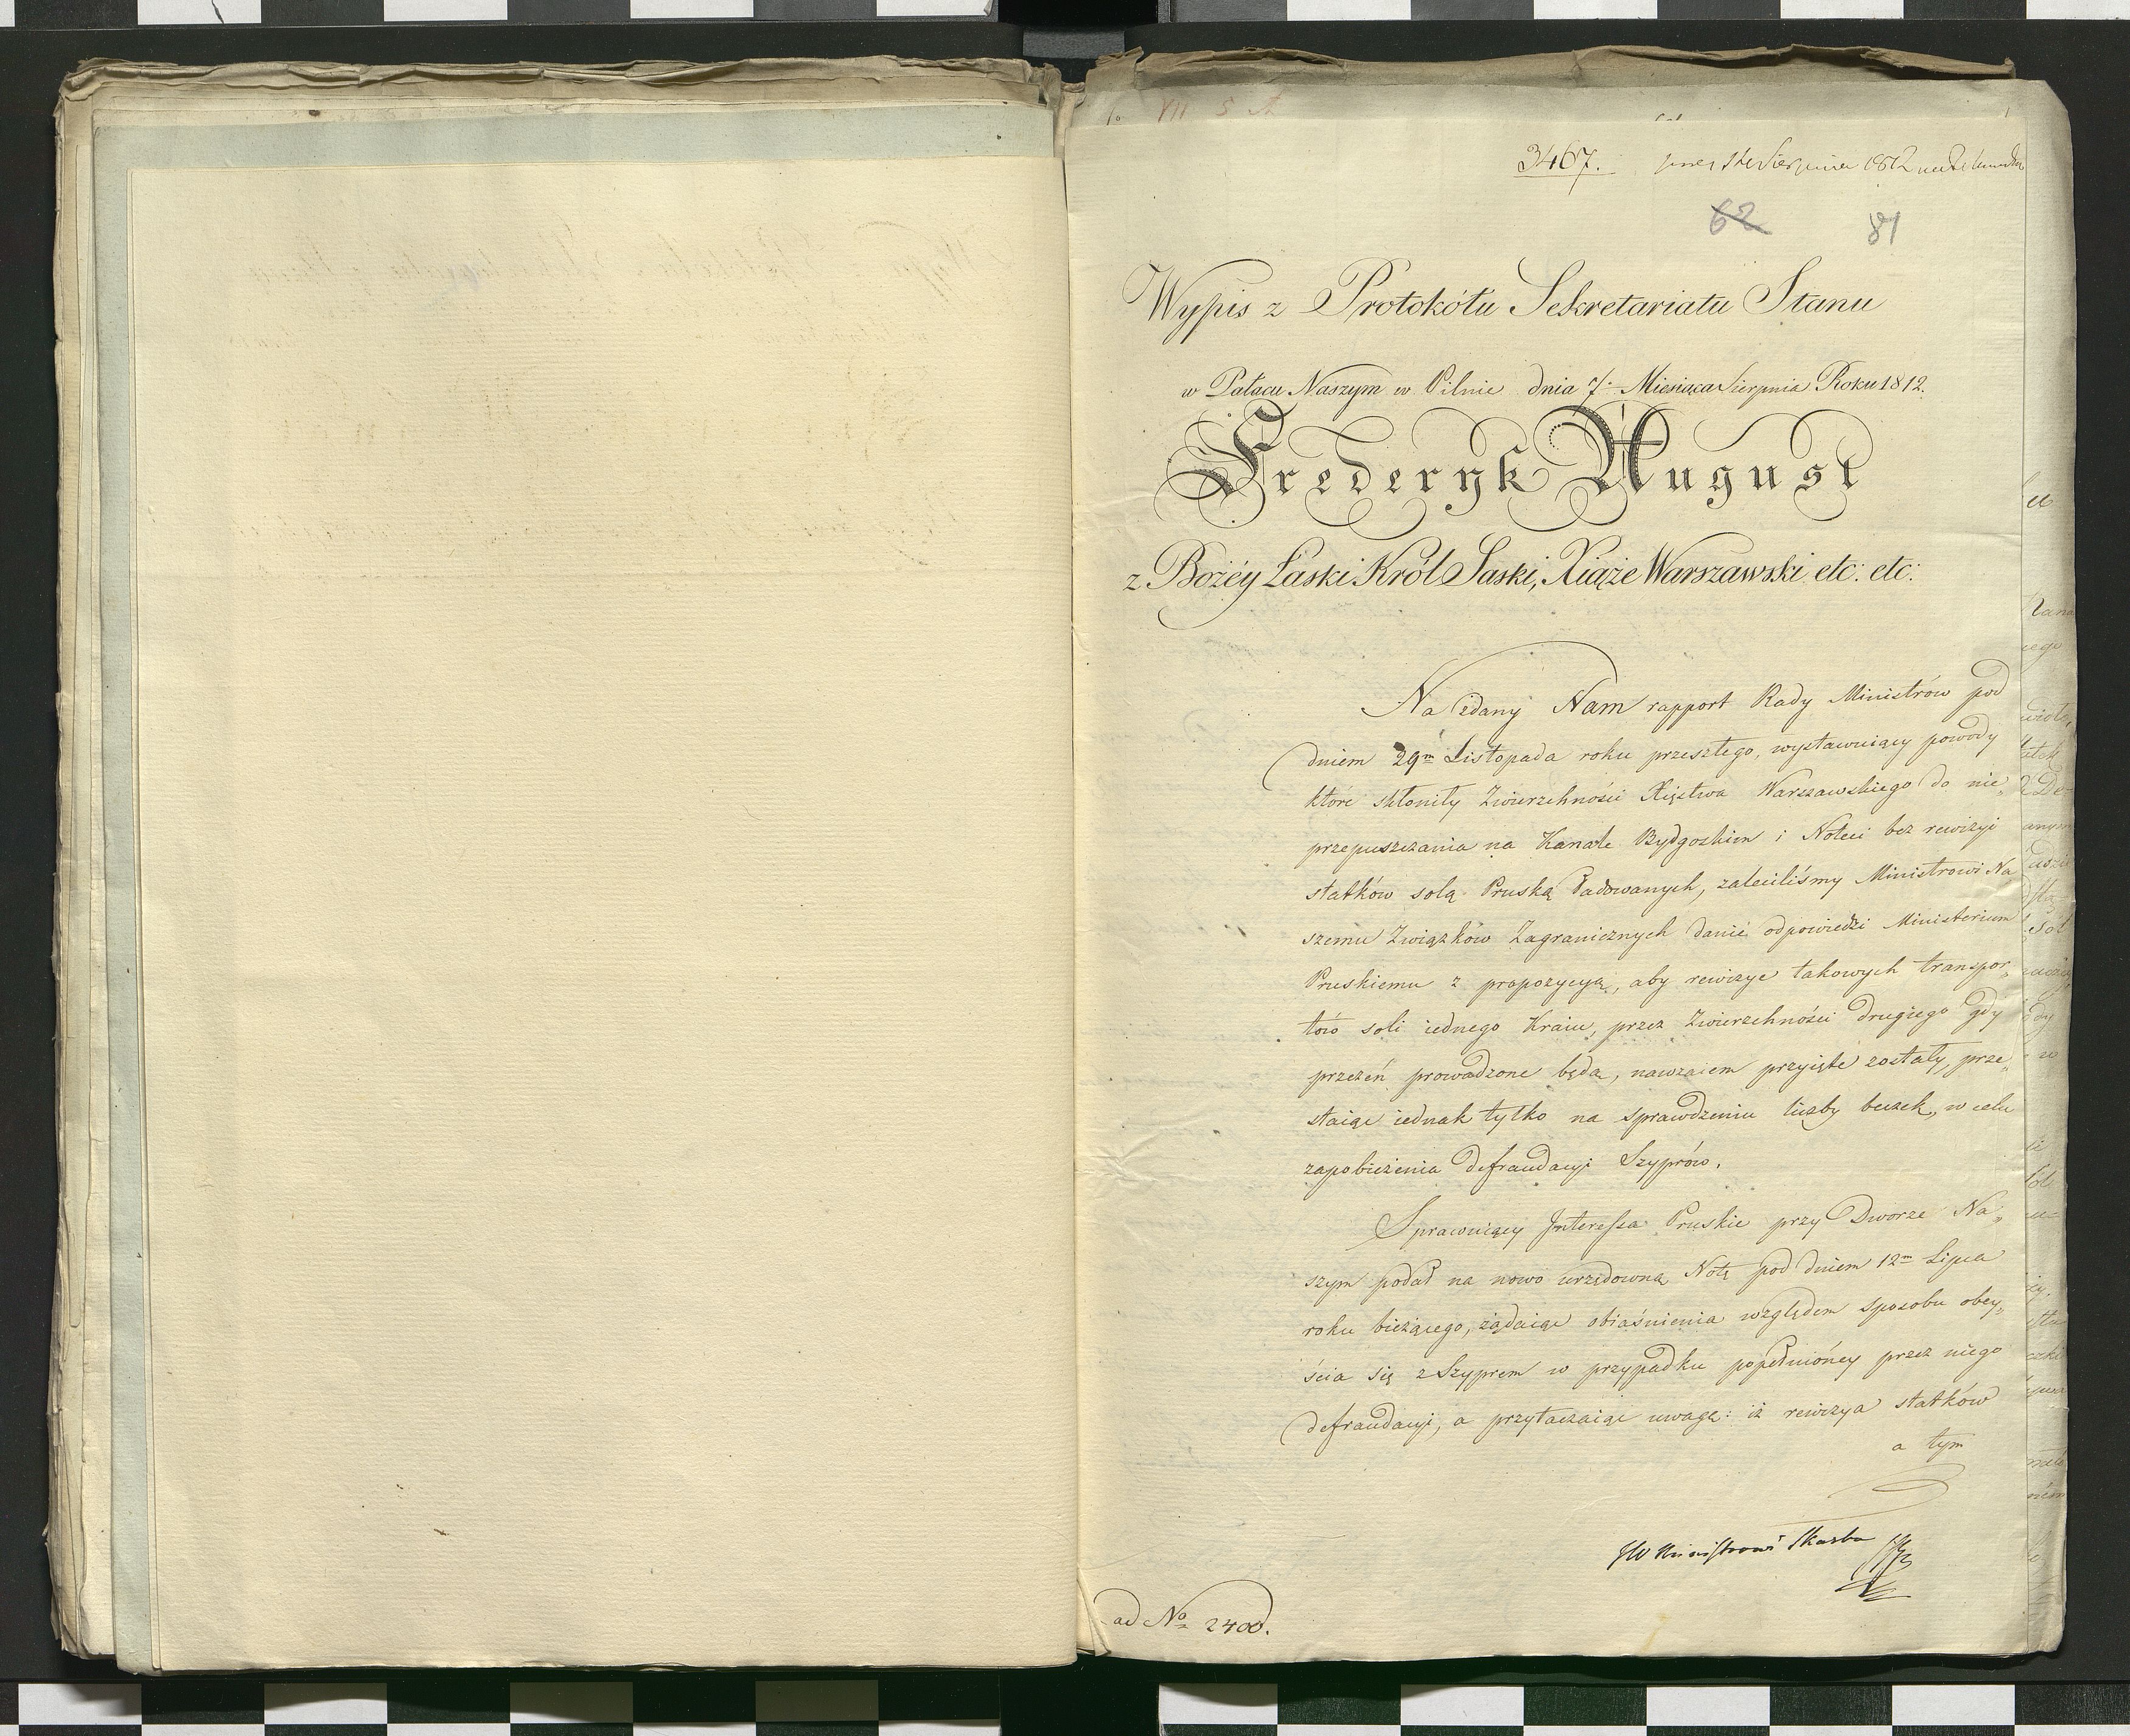 3467.
62 81
Wypis z Protokółu Sekretariatu Stanu
w Pałacu Naszym w Pilnie dnia 7. Miesiąca Sierpnia Roku 1812.
Frederyk August
z Bożéy Łaski Król Saski, Xiąże Warszawski etc: etc:
Na zdany Nam rapport Rady Ministrów pod
dniem 29m Listopada roku przeszłego, wystawuiący powody
które skłoniły Zwierzchności Xięstwa Warszawskiego do nie„
przepuszczania na Kanale Bydgoskim i Noteci bez rewizyi
statków solą Pruską ładowanych, zaleciliśmy Ministrowi Na
szemu Związków Zagranicznych danie odpowiedzi Ministerium
Pruskiemu z propozycyą, aby rewizye takowych transpor„
tów soli iednego Kraiu, przez Zwierzchności drugiego gdy
przezeń prowadzone będą, nawzaiem przyięte zostały, prze„
staiąc iednak tylko na sprawdzeniu liczby beczek, w celu
zapobieżenia defraudacyi Szyprów.
Sprawuiący Interessa Pruskie przy Dworze Na„
szym podał na nowo urzędowną Notę pod dniem 12m Lipca
roku bieżącego, żądaiąc obiaśnienia względem sposobu obey„
ścia się z Szyprem w przypadku popełnionéy przez niego
defraudacyi, a przytaczaiąc uwagę: iż rewizya statków
a tym
JW Ministrowi Skarbu
ad No 2400.